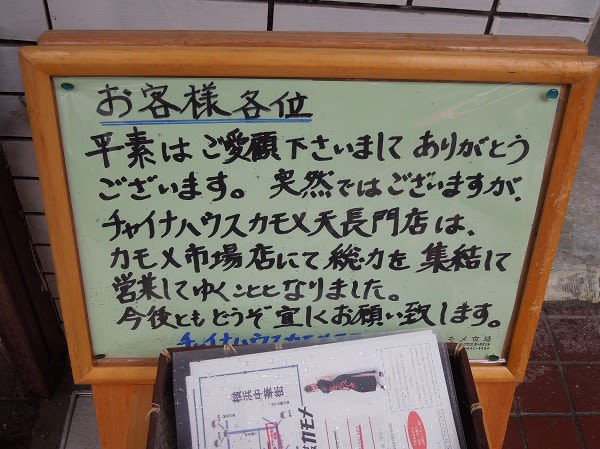 お客様各位
平素はご愛顧下さいまして ありがとう
ございます。突然ではございますが、
チャイナハウスカモメ天長門店は、
カモメ市場店にて総力を集結して
営業してゆくこととなりました。
今後ともどうぞ宜しくお願い致します。
チャイナハウスカモメ
モメ市場
横浜中華街
カモメ